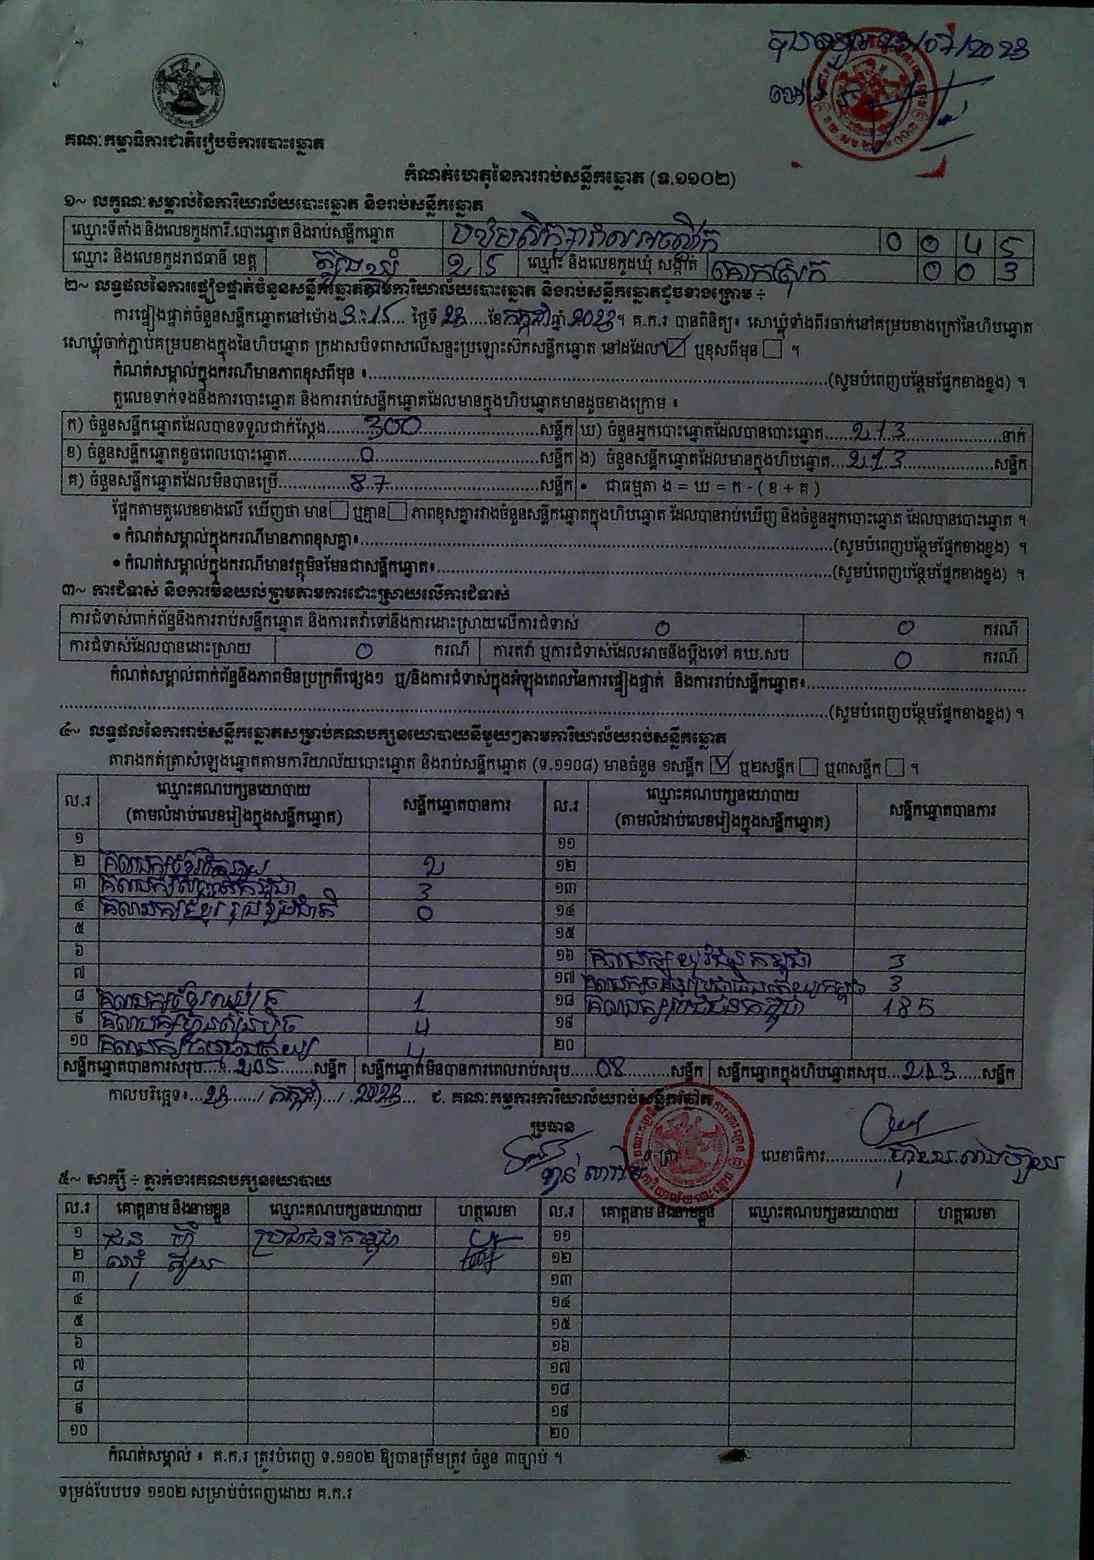 គណៈកម្មាធិការជាតិរៀបចំការបោះឆ្នោត
កំណត់ហេតុនៃការរាប់សន្លឹកឆ្នោត (ទ.១១០២)
១~ លក្ខណៈសម្គាល់នៃការិយាល័យបោះឆ្នោត និងរាប់សន្លឹកឆ្នោត
ឈ្មោះទីតាំង និងលេខកូដការិ.បោះឆ្នោត និងរាប់សន្លឹកឆ្នោត 0 0 4 5
ឈ្មោះ និងលេខកូដរាជធានី ខេត្ត ត្បូងឃ្មុំ 2 5 ឈ្មោះ និងលេខកូដឃុំ សង្កាត់ គោកស្រុក 0 0 3
២~ លទ្ធផលនៃការផ្ទៀងផ្ទាត់ចំនួនសន្លឹកឆ្នោតតាមការិយាល័យបោះឆ្នោត និងរាប់សន្លឹកឆ្នោតដូចខាងក្រោម ÷
ការផ្ទៀងផ្ទាត់ចំនួនសន្លឹកឆ្នោតនៅម៉ោង 3:15 ថ្ងៃទី 23 ខែ កក្កដា ឆ្នាំ 2023។ គ.ក.រ បានពិនិត្យ៖ សោឃ្លុំទាំងពីរចាក់នៅគម្របខាងក្រៅនៃហិបឆ្នោត
សោឃ្លុំចាក់ភ្ជាប់គម្របខាងក្នុងនៃហិបឆ្នោត ក្រដាសបិទពាសលើសន្ទះប្រឡោះស៊កសន្លឹកឆ្នោត នៅដដែល ☑ ឬខុសពីមុន ☐ ។
កំណត់សម្គាល់ក្នុងករណីមានភាពខុសពីមុន ៖ (សូមបំពេញបន្ថែមផ្នែកខាងខ្នង) ។
តួលេខទាក់ទងនឹងការបោះឆ្នោត និងការរាប់សន្លឹកឆ្នោតដែលមានក្នុងហិបឆ្នោតមានដូចខាងក្រោម ៖
ក) ចំនួនសន្លឹកឆ្នោតដែលបានទទួលជាក់ស្តែង 300 សន្លឹក ឃ) ចំនួនអ្នកបោះឆ្នោតដែលបានបោះឆ្នោត 213 នាក់
ខ) ចំនួនសន្លឹកឆ្នោតខូចពេលបោះឆ្នោត 0 សន្លឹក ង) ចំនួនសន្លឹកឆ្នោតដែលមានក្នុងហិបឆ្នោត 213 សន្លឹក
គ) ចំនួនសន្លឹកឆ្នោតដែលមិនបានប្រើ 87 សន្លឹក • ជាធម្មតា ង = ឃ = ក - ( ខ + គ )
ផ្អែកតាមតួលេខខាងលើ ឃើញថា មាន ☐ ឬគ្មាន ☐ ភាពខុសគ្នារវាងចំនួនសន្លឹកឆ្នោតក្នុងហិបឆ្នោត ដែលបានរាប់ឃើញ និងចំនួនអ្នកបោះឆ្នោត ដែលបានបោះឆ្នោត ។
• កំណត់សម្គាល់ក្នុងករណីមានភាពខុសគ្នា៖ (សូមបំពេញបន្ថែមផ្នែកខាងខ្នង) ។
• កំណត់សម្គាល់ក្នុងករណីមានវត្ថុមិនមែនជាសន្លឹកឆ្នោត៖ (សូមបំពេញបន្ថែមផ្នែកខាងខ្នង) ។
៣~ ការជំទាស់ និងការមិនយល់ព្រមតាមការដោះស្រាយលើការជំទាស់
ការជំទាស់ពាក់ព័ន្ធនឹងការរាប់សន្លឹកឆ្នោត និងការតវ៉ាទៅនឹងការដោះស្រាយលើការជំទាស់ 0 0 ករណី
ការជំទាស់ដែលបានដោះស្រាយ 0 ករណី ការតវ៉ា ឬការជំទាស់ដែលអាចនឹងប្តឹងទៅ គឃ.សប 0 ករណី
កំណត់សម្គាល់ពាក់ព័ន្ធនឹងភាពមិនប្រក្រតីផ្សេងៗ ឬ/និងការជំទាស់ក្នុងអំឡុងពេលនៃការផ្ទៀងផ្ទាត់ និងការរាប់សន្លឹកឆ្នោត៖
(សូមបំពេញបន្ថែមផ្នែកខាងខ្នង) ។
៤~ លទ្ធផលនៃការរាប់សន្លឹកឆ្នោតសម្រាប់គណបក្សនយោបាយនីមួយៗតាមការិយាល័យរាប់សន្លឹកឆ្នោត
តារាងកត់ត្រាសំឡេងឆ្នោតតាមការិយាល័យបោះឆ្នោត និងរាប់សន្លឹកឆ្នោត (ទ.១១០៨) មានចំនួន ១សន្លឹក ☑ ឬ២សន្លឹក ☐ ឬ៣សន្លឹក ☐ ។
ល.រ ឈ្មោះគណបក្សនយោបាយ (តាមលំដាប់លេខរៀងក្នុងសន្លឹកឆ្នោត) សន្លឹកឆ្នោតបានការ ល.រ ឈ្មោះគណបក្សនយោបាយ (តាមលំដាប់លេខរៀងក្នុងសន្លឹកឆ្នោត) សន្លឹកឆ្នោតបានការ
១ ១១
២ 2 ១២
៣ 3 ១៣
៤ គណបក្សខ្មែររួបរួមជាតិ 0 ១៤
៥ ១៥
៦ ១៦ គណបក្សយុវជនកម្ពុជា 3
៧ ១៧ 3
៨ 1 ១៨ គណបក្សប្រជាជនកម្ពុជា 185
៩ គណបក្សហ៊្វុនស៊ិនប៉ិច 4 ១៩
១០ 4 ២០
សន្លឹកឆ្នោតបានការសរុប 205 សន្លឹក សន្លឹកឆ្នោតមិនបានការពេលរាប់សរុប 08 សន្លឹក សន្លឹកឆ្នោតក្នុងហិបឆ្នោតសរុប 213 សន្លឹក
កាលបរិច្ឆេទ៖ 23 / កក្កដា / 2023 ជ. គណៈកម្មការការិយាល័យរាប់សន្លឹកឆ្នោត
ប្រធាន
លេខាធិការ
៥~ សាក្សី ÷ ភ្នាក់ងារគណបក្សនយោបាយ
ល.រ គោត្តនាម និងនាមខ្លួន ឈ្មោះគណបក្សនយោបាយ ហត្ថលេខា ល.រ គោត្តនាម និងនាមខ្លួន ឈ្មោះគណបក្សនយោបាយ ហត្ថលេខា
១ ប្រជាជនកម្ពុជា ១១
២ ១២
៣ ១៣
៤ ១៤
៥ ១៥
៦ ១៦
៧ ១៧
៨ ១៨
៩ ១៩
១០ ២០
កំណត់សម្គាល់ ៖ គ.ក.រ ត្រូវបំពេញ ទ.១១០២ ឱ្យបានត្រឹមត្រូវ ចំនួន ៣ច្បាប់ ។
ទម្រង់បែបបទ ១១០២ សម្រាប់បំពេញដោយ គ.ក.រ